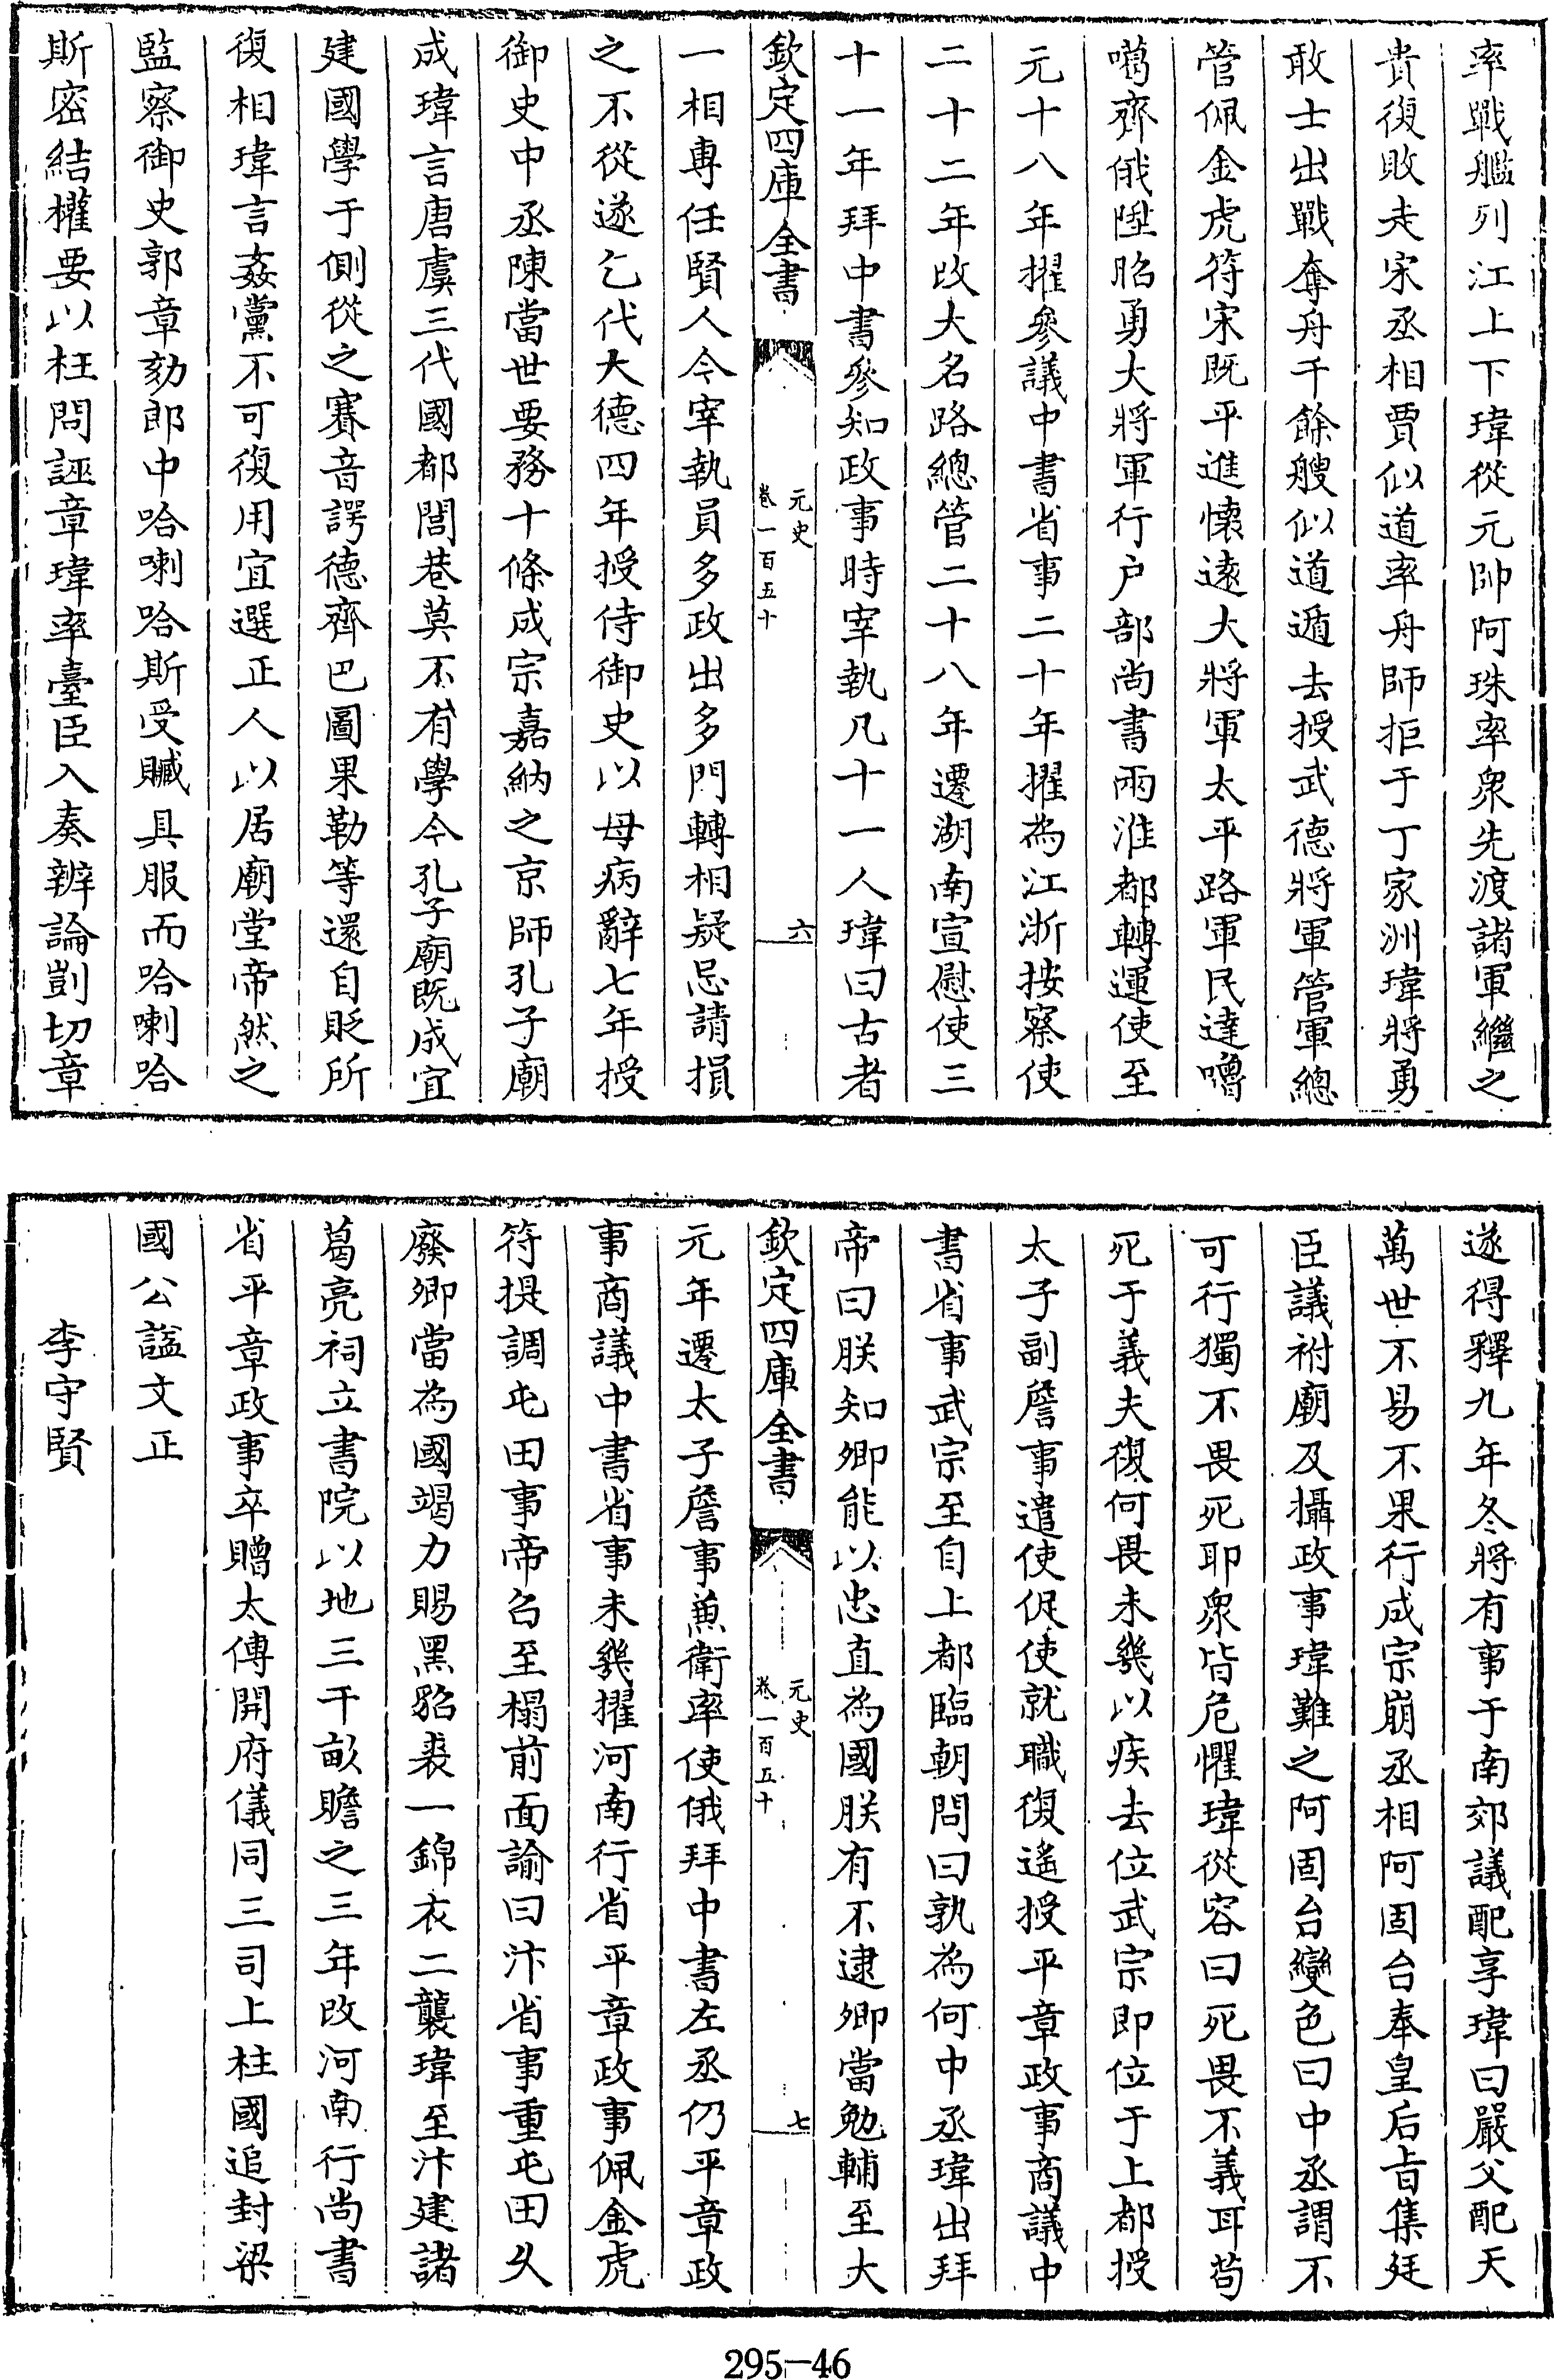 率戰艦列江上下瑋從元帥阿珠率衆先渡諸軍繼之
貴復敗走宋丞相賈似道率舟師拒于丁家洲瑋將勇
敢士出戰奪舟千餘艘似道遁去授武德將軍管軍總
管佩金虎符宋既平進懷遠大將軍太平路軍民達嚕
噶齊俄陞昭勇大將軍行户部尚書兩淮都轉運使至
元十八年擢參議中書省事二十年擢為江浙按察使
二十二年改大名路總管二十八年遷湖南宣慰使三
十一年拜中書參知政事時宰執凡十一人瑋曰古者
欽定四庫全書
元史
卷一百五十
六
一相專任賢人今宰執員多政出多門轉相疑忌請損
之不從遂乞代大德四年授侍御史以母病辭七年授
御史中丞陳當世要務十條成宗嘉納之京師孔子廟
成瑋言唐虞三代國都閭巷莫不有學今孔子廟既成宜
建國學于側從之賽音諤德齊巴圖果勒等還自貶所
復相瑋言姦黨不可復用宜選正人以居廟堂帝然之
監察御史郭章劾郎中哈喇哈斯受贓具服而哈喇哈
斯密結權要以枉問誣章瑋率臺臣入奏辨論剴切章
遂得釋九年冬將有事于南郊議配享瑋曰嚴父配天
萬世不易不果行成宗崩丞相阿固台奉皇后旨集廷
臣議祔廟及攝政事瑋難之阿固台變色曰中丞謂不
可行獨不畏死耶衆皆危懼瑋從容曰死畏不義耳苟
死于義夫復何畏未幾以疾去位武宗即位于上都授
太子副詹事遣使促使就職復遙授平章政事商議中
書省事武宗至自上都臨朝問曰孰為何中丞瑋出拜
帝曰朕知卿能以忠直為國朕有不逮卿當勉輔至大
欽定四庫全書
元史
卷一百五十
七
元年遷太子詹事兼衛率使俄拜中書左丞仍平章政
事商議中書省事未幾擢河南行省平章政事佩金虎
符提調屯田事帝召至榻前面諭曰汴省事重屯田久
廢卿當為國竭力賜黑貂裘一錦衣二襲瑋至汴建諸
葛亮祠立書院以地三千畝贍之三年改河南行尚書
省平章政事卒贈太傅開府儀同三司上柱國追封梁
國公諡文正
李守賢
295-46